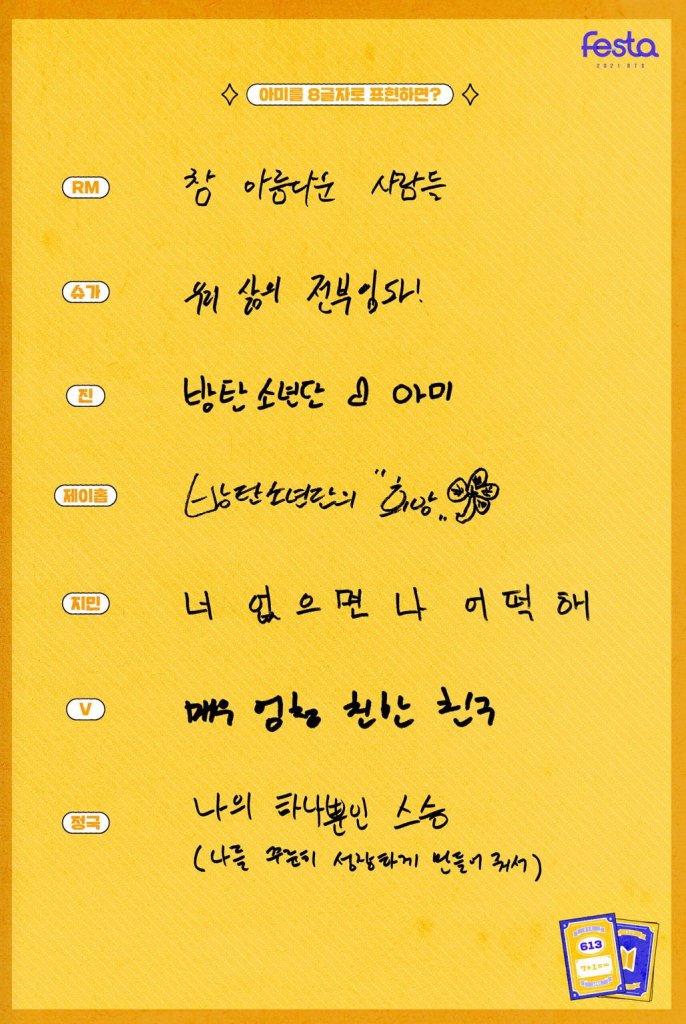 festa
2021 BTS
아미를 8글자로 표현하면?
RM 참 아름다운 사람들
슈가 우리 삶의 전부입니다!
진 방탄소년단 아미
제이홉 방탄소년단의 "희망"
지민 너 없으면 나 어떡해
V 매우 엄청 친한 친구
정국 나의 하나뿐인 스승
(나를 꾸준히 성장하게 만들어줘서)
613